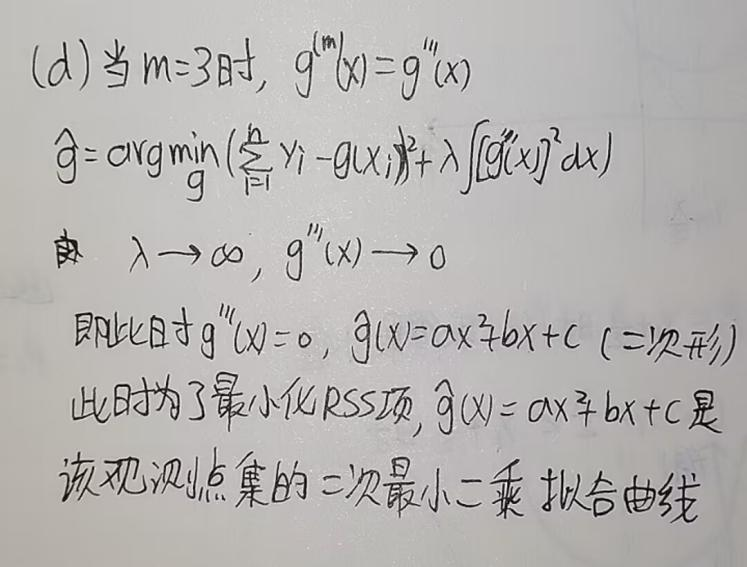 (d) 当 m=3时, g^(m)(x)=g'''(x)
ĝ=argmin_g (∑_{i=1}^n yi-g(xi))²+λ∫[g'''(x)]²dx)
λ→∞, g'''(x)→0
即此时 g'''(x)=0, ĝ(x)=ax²+bx+c (二次形)
此时为了最小化RSS项, ĝ(x)=ax²+bx+c是
该观测点集的二次最小二乘拟合曲线